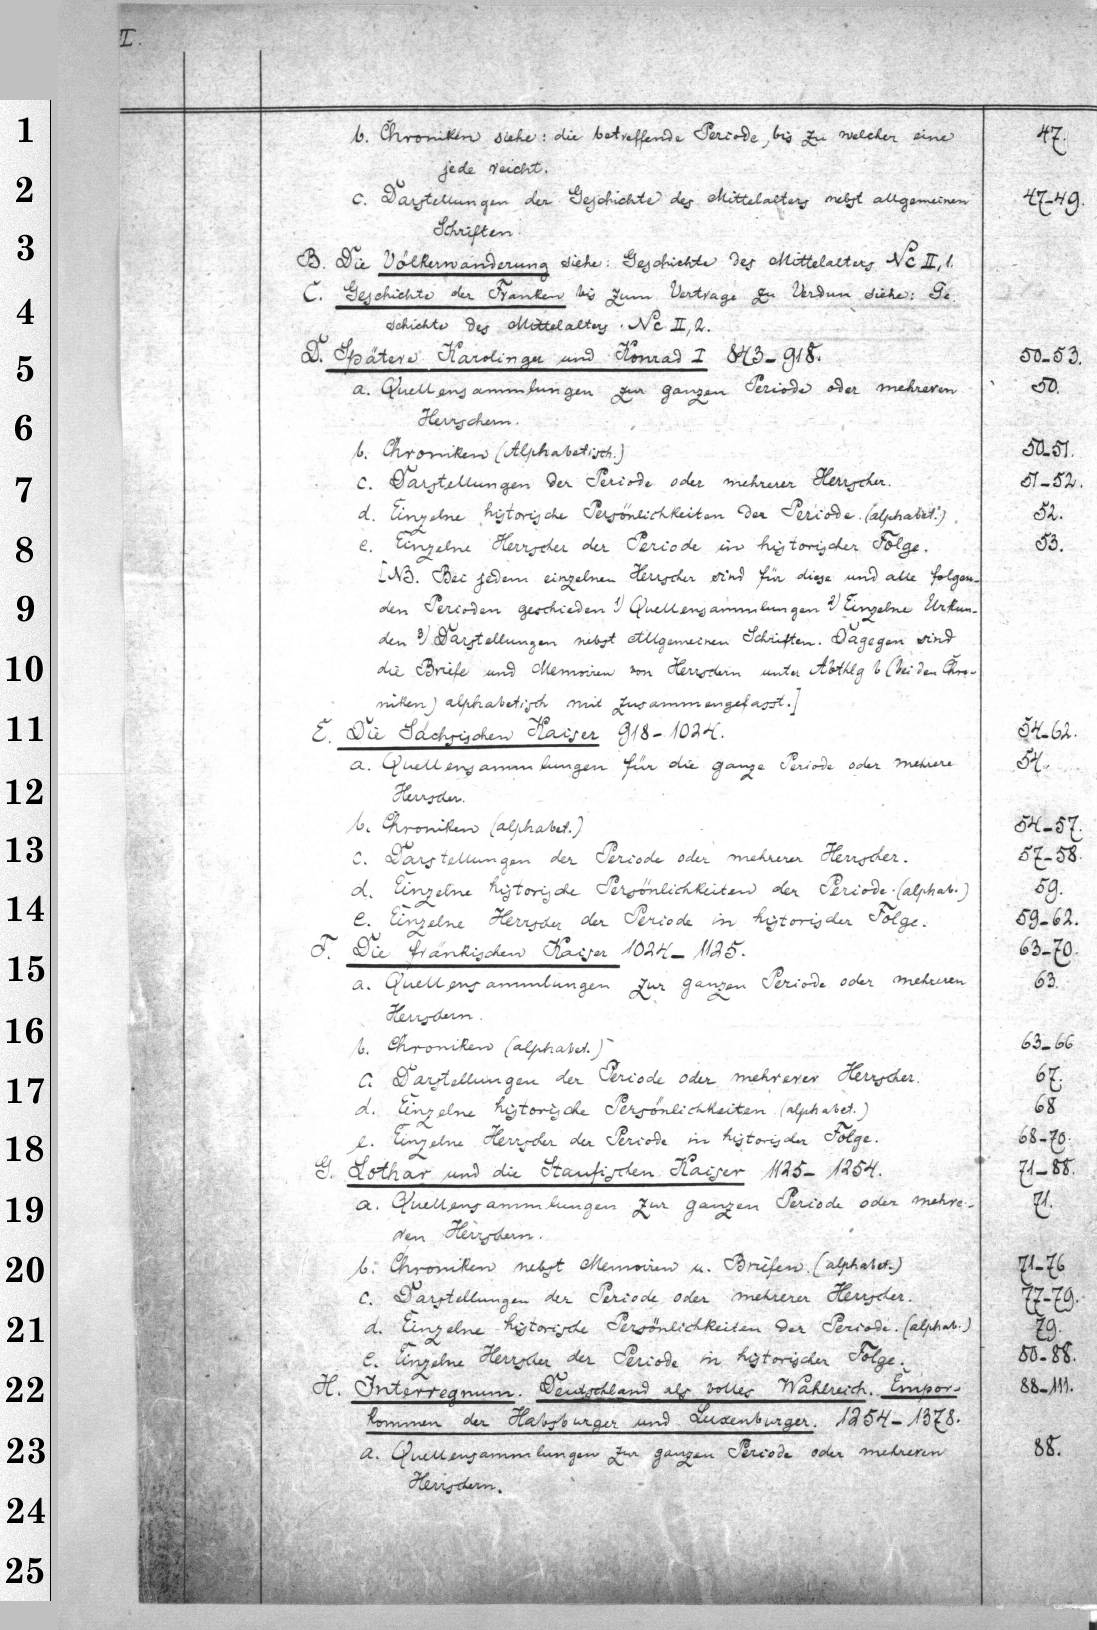 II.
1
2
3
4
5
6
7
8
9
10
11
12
13
14
15
16
17
18
19
20
21
22
23
24
25
b. Chroniken siehe: die betreffende Periode, bis zu welcher eine 47.
jede reicht.
c. Darstellungen der Geschichte des Mittelalters nebst allgemeinen 47-49.
Schriften.
B. Die Völkerwanderung siehe: Geschichte des Mittelalters Nc II, 1.
C. Geschichte der Franken bis zum Vertrage zu Verdun siehe: Ge
schichte des Mittelalters. Nc II, 2.
D. Spätere Karolinger und Konrad I 843-918. 50-53.
a. Quellensammlungen zur ganzen Periode oder mehreren 50.
Herrschern.
b. Chroniken (Alphabetisch.) 50-51.
c. Darstellungen der Periode oder mehrerer Herrscher. 51-52.
d. Einzelne historische Persönlichkeiten der Periode. (alphabet.) 52.
e. Einzelne Herrscher der Periode in historischer Folge. 53.
[NB. Bei jedem einzelnen Herrscher sind für diese und alle folgen-
den Perioden geschieden 1) Quellensammlungen 2) Einzelne Urkun-
den 3) Darstellungen nebst Allgemeinen Schriften. Dagegen sind
die Briefe und Memoiren von Herrschern unter Abthlg b (bei den Chro-
niken) alphabetisch mit zusammengefasst.]
E. Die Sächsischen Kaiser 918-1024. 54-62.
a. Quellensammlungen für die ganze Periode oder mehrere 54.
Herrscher.
b. Chroniken (alphabet.) 54-57.
c. Darstellungen der Periode oder mehrerer Herrscher. 57-58.
d. Einzelne historische Persönlichkeiten der Periode. (alphab.) 59.
e. Einzelne Herrscher der Periode in historischer Folge. 59-62.
F. Die fränkischen Kaiser 1024-1125. 63-70.
a. Quellensammlungen zur ganzen Periode oder mehreren 63.
Herrschern.
b. Chroniken (alphabet.) 63-66
c. Darstellungen der Periode oder mehrerer Herrscher. 67.
d. Einzelne historische Persönlichkeiten (alphabet.) 68
e. Einzelne Herrscher der Periode in historischer Folge. 68-70.
G. Lothar und die Staufischen Kaiser 1125-1254. 71-88.
a. Quellensammlungen zur ganzen Periode oder mehre- 71.
ren Herrschern.
b. Chroniken nebst Memoiren u. Briefen. (alphabet.) 71-76
c. Darstellungen der Periode oder mehrerer Herrscher. 77-79.
d. Einzelne historische Persönlichkeiten der Periode. (alphab.) 79.
e. Einzelne Herrscher der Periode in historischer Folge. 80-88.
H. Interregnum. Deutschland als volles Wahlreich. Empor- 88-111.
kommen der Habsburger und Luxenburger. 1254-1378.
a. Quellensammlungen zur ganzen Periode oder mehreren 88.
Herrschern.